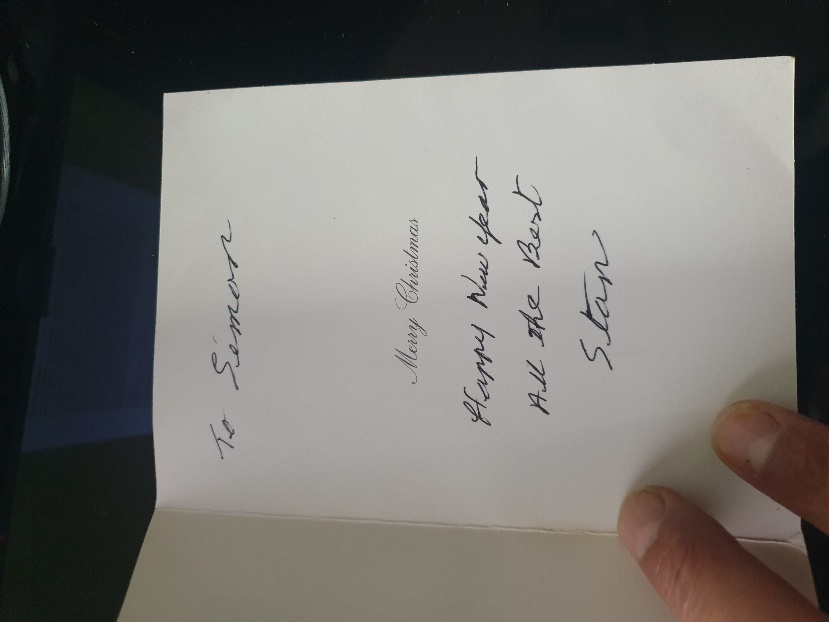 To Simon
Merry Christmas
Happy New Year
All the Best
Stan